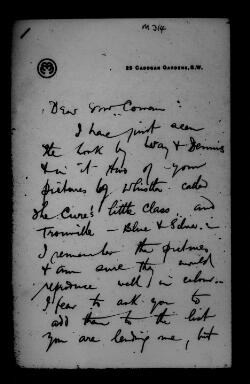 M 314
25 CADOGAN GARDENS, S.W.
Dear Mr Cowan
I have just seen
the book by Way & Dennis
& in it two of your
pictures by Whistler called
The Curé's little Class and
Trouville – Blue & Silver. –
I remember the pictures
& am sure they would
reproduce well in colour. –
I fear to ask you to
add them to the list
you are lending me, but